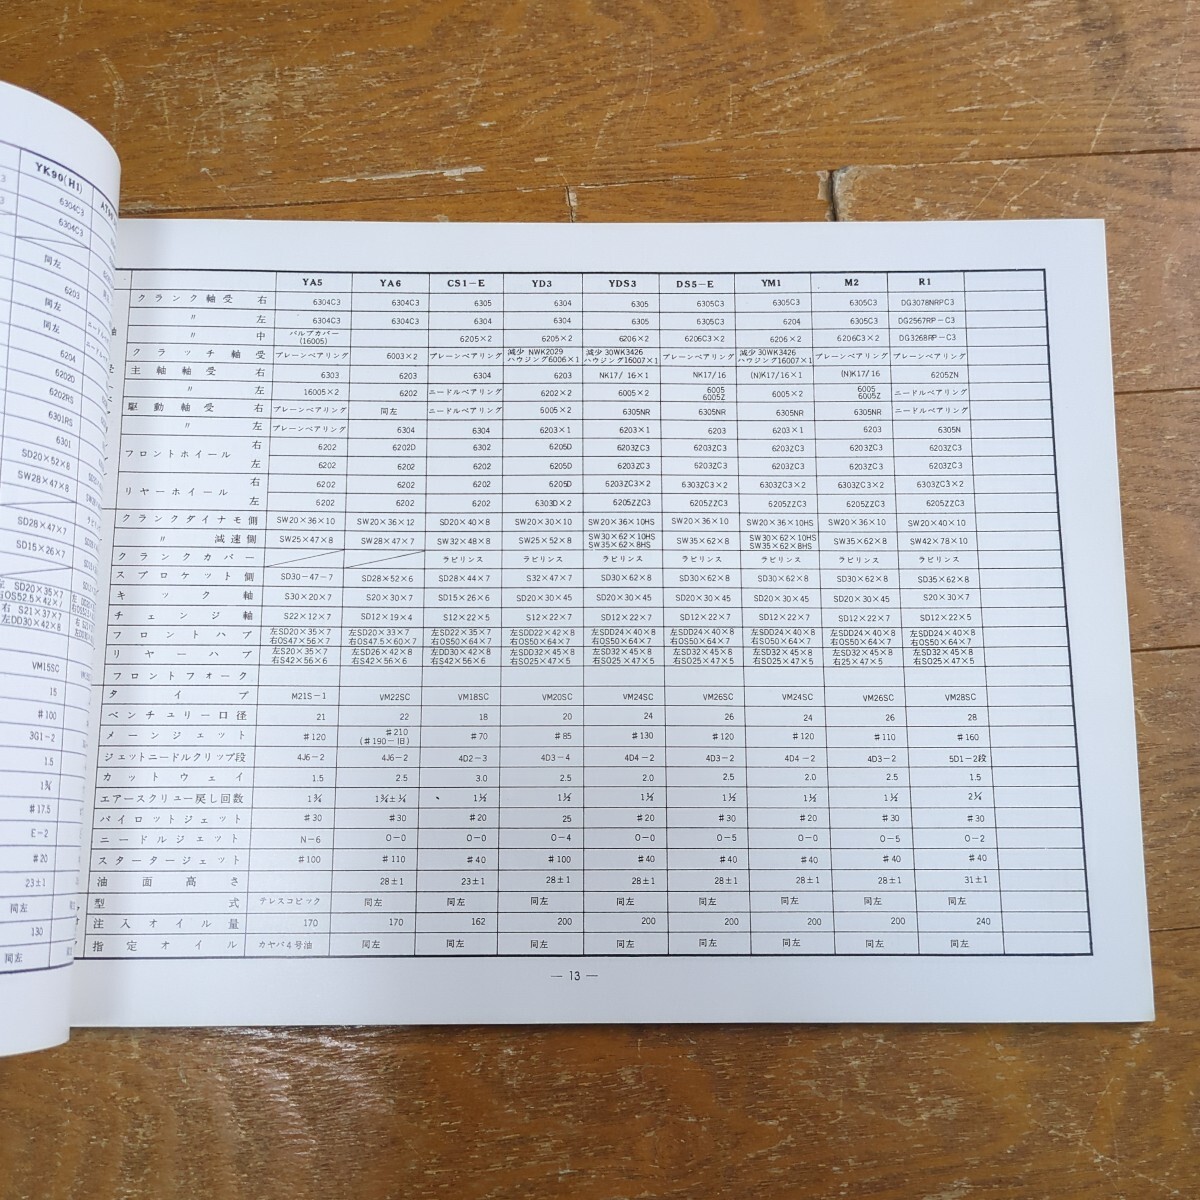 YK90(H1)
6304C3
6304C3
同左
6203
同左
同左
6204
6202D
6202RS
6301RS
6301
SD20×52×8
SW28×47×8
SD28×47×7
SD15×26×7
SD20×35×7
右OS52.5×42×7
右 S21×37×7
左DD30×42×8
VM15SC
15
#100
3G1-2
1.5
1¾
#17.5
E-2
#20
23±1
同左
130
同左
YA5 YA6 CS1-E YD3 YDS3 DS5-E YM1 M2 R1
クランク軸受 右 6304C3 6304C3 6305 6304 6305 6305C3 6305C3 6305C3 DG3078NRPC3
〃 左 6304C3 6304C3 6304 6304 6305 6305C3 6204 6305C3 DG2567RP-C3
〃 中 バルブカバー(16005) 6205×2 6205×2 6206×2 6206C3×2 6206×2 6206C3×2 DG3268RP-C3
クラッチ軸受 プレーンベアリング 6003×2 プレーンベアリング 減少 NWK2029 ハウジング6006×1 減少 30WK3426 ハウジング16007×1 プレーンベアリング 減少 30WK3426 ハウジング16007×1 プレーンベアリング プレーンベアリング
主軸軸受 右 6303 6203 6304 6203 NK17/16×1 NK17/16 (N)K17/16×1 (N)K17/16 6205ZN
〃 左 16005×2 6202 ニードルベアリング 6202×2 6005×2 6005 6005Z 6005×2 6005 6005Z ニードルベアリング
駆動軸受 右 プレーンベアリング 同左 ニードルベアリング 6005×2 6305NR 6305NR 6305NR 6305NR ニードルベアリング
〃 左 プレーンベアリング 6304 6304 6203×1 6203×1 6203 6203×1 6203 6305N
フロントホイール 右 6202 6202D 6302 6205D 6203ZC3 6203ZC3 6203ZC3 6203ZC3 6203ZC3
左 6202 6202 6202 6205D 6203ZC3 6203ZC3 6203ZC3 6203ZC3 6203ZC3
リヤーホイール 右 6202 6202 6202 6205D 6203ZC3×2 6303ZC3×2 6303ZC3×2 6303ZC3×2 6303ZC3×2
左 6202 6202 6202 6303D×2 6205ZZC3 6205ZZC3 6205ZZC3 6205ZZC3 6205ZZC3
クランクダイナモ側 SW20×36×10 SW20×36×12 SD20×40×8 SW20×30×10 SW20×36×10HS SW20×36×10 SW20×36×10HS SW20×36×10 SW20×40×10
〃 減速側 SW25×47×8 SW28×47×7 SW32×48×8 SW25×52×8 SW30×62×10HS SW35×62×8HS SW35×62×8 SW30×62×10HS SW35×62×8HS SW35×62×8 SW42×78×10
クランクカバー ラビリンス ラビリンス ラビリンス ラビリンス ラビリンス ラビリンス ラビリンス
スプロケット側 SD30-47-7 SD28×52×6 SD28×44×7 S32×47×7 SD30×62×8 SD30×62×8 SD30×62×8 SD30×62×8 SD35×62×8
キック軸 S30×20×7 S20×30×7 SD15×26×6 SD20×30×45 SD20×30×45 SD20×30×45 SD20×30×45 SD20×30×45 S20×30×7
チェンジ軸 S22×12×7 SD12×19×4 S12×22×5 S12×22×7 SD12×22×7 SD12×22×7 SD12×22×7 SD12×22×7 SD12×22×7
フロントハブ 左SD20×35×7 右OS47×56×7 左SD20×33×7 右OS47.5×60×7 左SD22×35×7 右OS50×64×7 左SDD22×42×8 右OS50×64×7 左SDD24×40×8 右OS50×64×7 左SDD24×40×8 右OS50×64×7 左SDD24×40×8 右OS50×64×7 左SDD24×40×8 右OS50×64×7 左SDD24×40×8 右OS50×64×7
リヤーハブ 左S20×35×7 右S42×56×6 左SD26×42×8 右S42×56×6 左DD30×42×8 右S42×56×6 左SDD32×45×8 右SO25×47×5 左SD32×45×8 右SO25×47×5 左SD32×45×8 右SO25×47×5 左SD32×45×8 右SO25×47×5 左SD32×45×8 右25×47×5 左SD32×45×8 右SO25×47×5
フロントフォーク
タイプ M21S-1 VM22SC VM18SC VM20SC VM24SC VM26SC VM24SC VM26SC VM28SC
ベンチュリー口径 21 22 18 20 24 26 24 26 28
メーンジェット #120 #210 (#190-旧) #70 #85 #130 #120 #120 #110 #160
ジェットニードルクリップ段 4J6-2 4J6-2 4D2-3 4D3-4 4D4-2 4D3-2 4D4-2 4D3-2 5D1-2段
カットウェイ 1.5 2.5 3.0 2.5 2.0 2.5 2.0 2.5 1.5
エアースクリュー戻し回数 1¾ 1¾±¼ 1½ 1½ 1½ 1½ 1½ 1½ 2¼
パイロットジェット #30 #30 #20 25 #20 #30 #20 #30 #30
ニードルジェット N-6 O-0 O-0 O-4 O-0 O-5 O-0 O-5 O-2
スタータージェット #100 #110 #40 #100 #40 #40 #40 #40 #40
油面高さ 28±1 23±1 28±1 28±1 28±1 28±1 28±1 31±1
型式 テレスコピック 同左 同左 同左 同左 同左 同左 同左 同左
注入オイル量 170 170 162 200 200 200 200 200 240
指定オイル カヤバ4号油 同左 同左 同左 同左 同左 同左 同左 同左
— 13 —